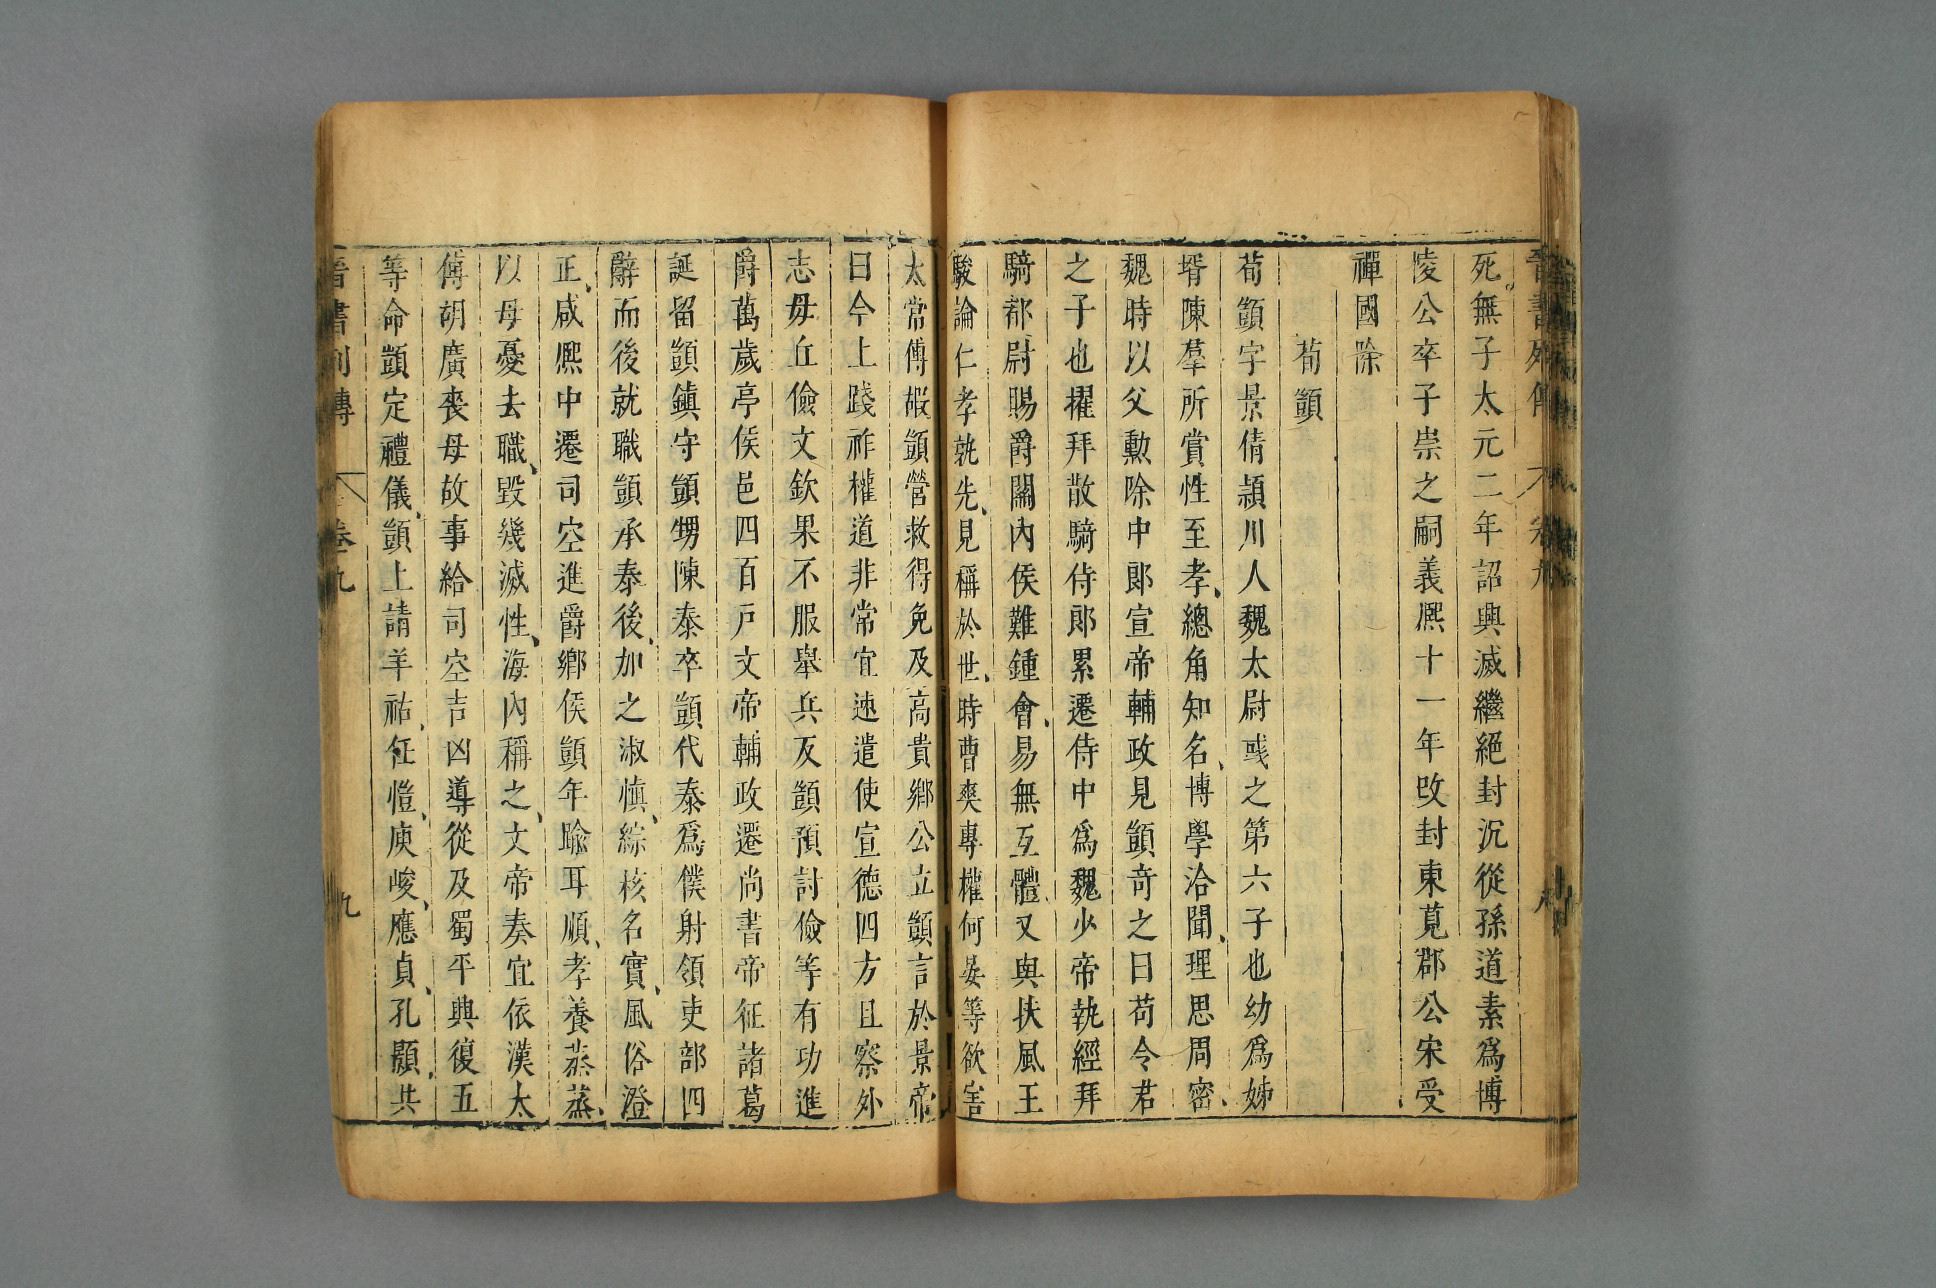 晉書列傳 卷九 八
死無子太元二年詔興滅繼絕封沉從孫道素爲博
陵公卒子崇之嗣義熙十一年改封東莧郡公宋受
禪國除
荀顗
荀顗字景倩潁川人魏太尉彧之第六子也幼爲姊
壻陳羣所賞性至孝總角知名博學洽聞理思周密
魏時以父勳除中郎宣帝輔政見顗奇之曰荀令君
之子也擢拜散騎侍郎累遷侍中爲魏少帝執經拜
騎都尉賜爵關內侯難鍾會易無互體又與扶風王
駿論仁孝孰先見稱於世時曹爽專權何晏等欲害
太常傅嘏顗營救得免及高貴鄉公立顗言於景帝
曰今上踐祚權道非常宜速遣使宣德四方且察外
志毋丘儉文欽果不服舉兵反顗預討儉等有功進
爵萬歲亭侯邑四百戸文帝輔政遷尚書帝征諸葛
誕留顗鎮守顗甥陳泰卒顗代泰爲僕射領吏部四
辭而後就職顗承泰後加之淑慎綜核名實風俗澄
正咸熙中遷司空進爵鄉侯顗年踰耳順孝養蒸蒸
以母憂去職毀幾滅性海內稱之文帝奏宜依漢太
傅胡廣喪母故事給司空吉凶導從及蜀平興復五
等命顗定禮儀顗上請羊祜任愷庾峻應貞孔顥共
晉書列傳 卷九 九